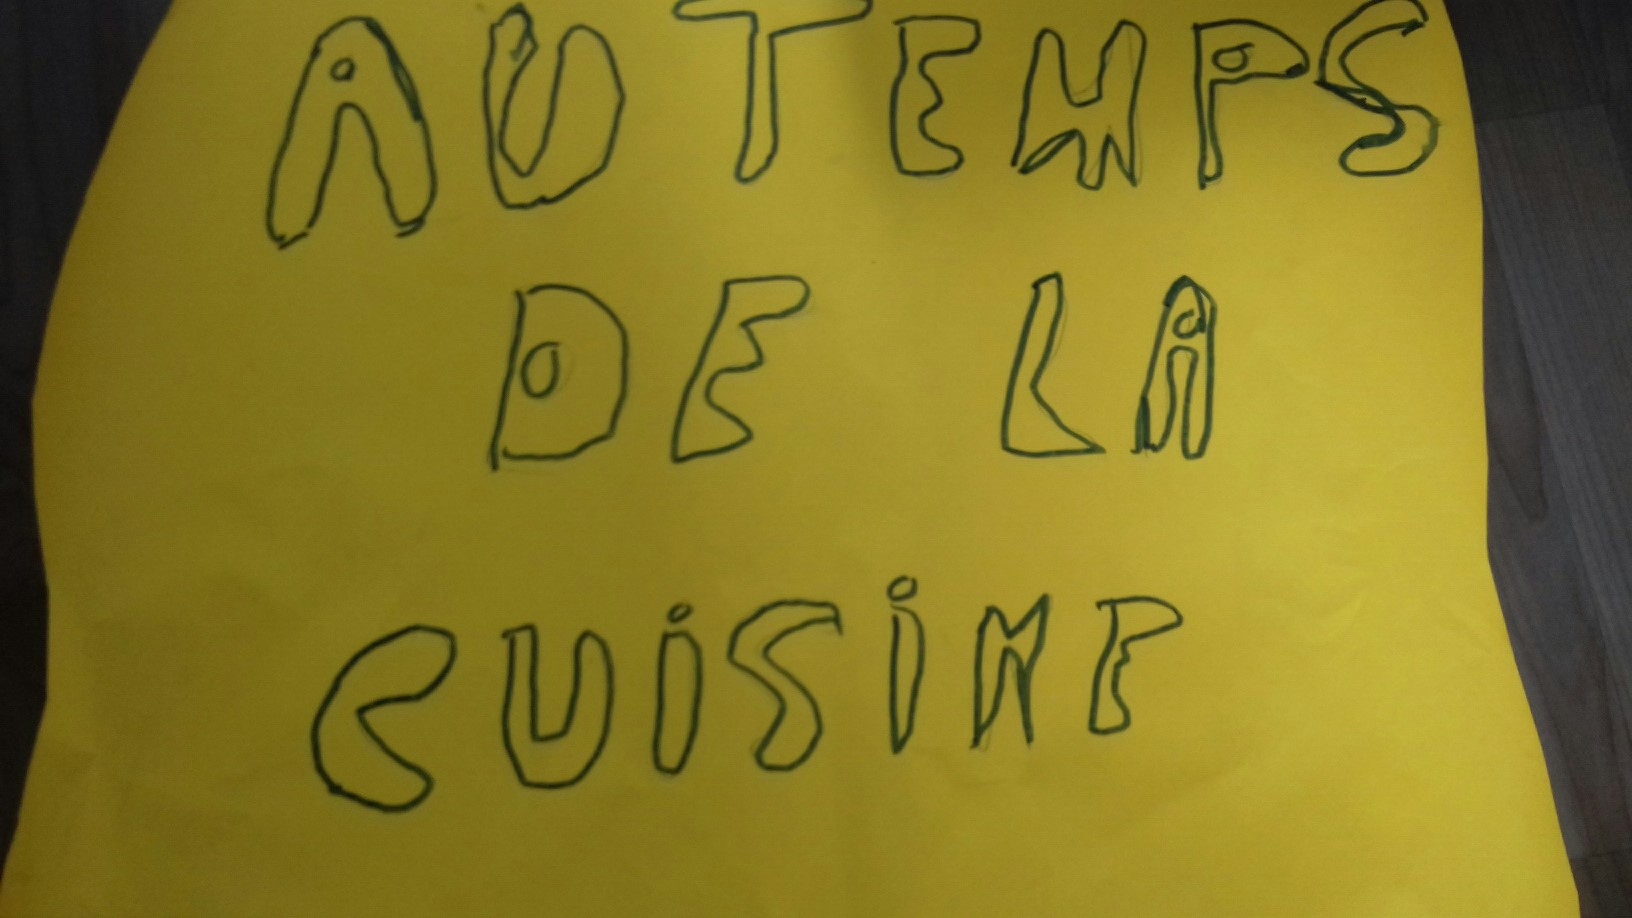 AU TEMPS
DE LA
CUiSiNE